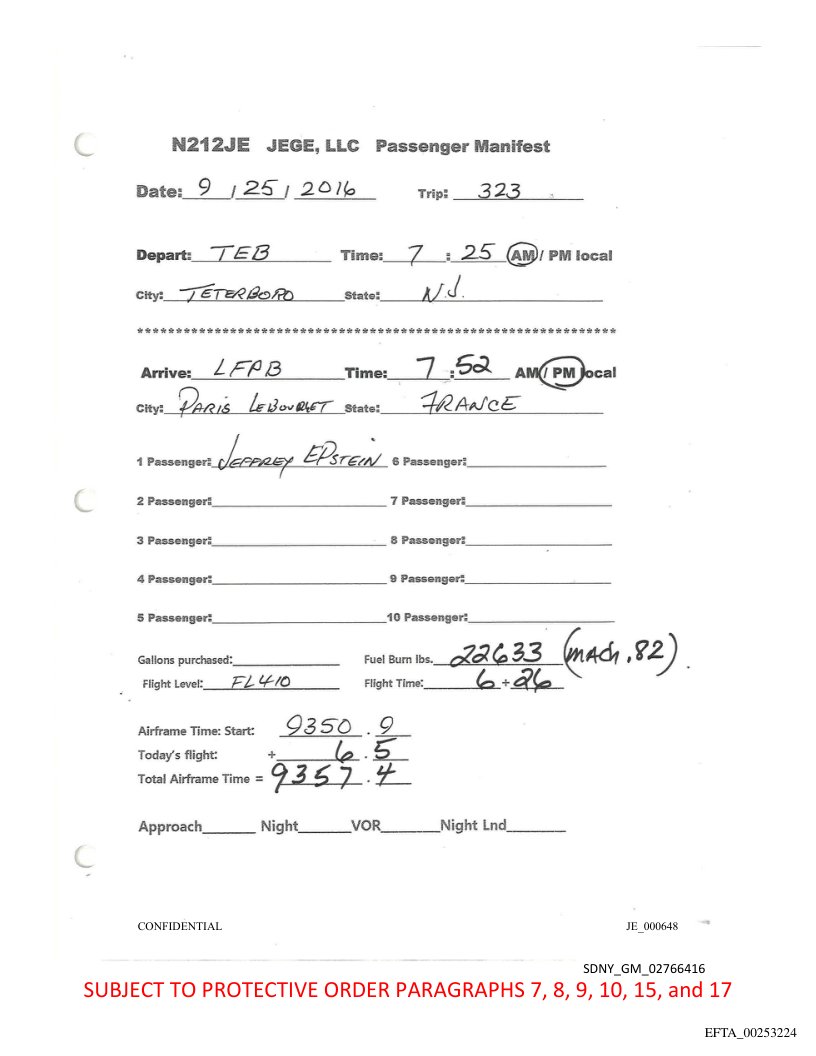 N212JE JEGE, LLC Passenger Manifest
Date: 9 / 25 / 2016 Trip: 323
Depart: TEB Time: 7 : 25 AM / PM local
City: TETERBORO State: N.J.
**************************************************************
Arrive: LFPB Time: 7 : 52 AM / PM local
City: PARIS LEBOURGET State: FRANCE
1 Passenger: JEFFREY EPSTEIN 6 Passenger:
2 Passenger: 7 Passenger:
3 Passenger: 8 Passenger:
4 Passenger: 9 Passenger:
5 Passenger: 10 Passenger:
Gallons purchased: Fuel Burn lbs. 22633 (MACH .82)
Flight Level: FL410 Flight Time: 6 + 26
Airframe Time: Start: 9350 . 9
Today's flight: + 6 . 5
Total Airframe Time = 9357 . 4
Approach Night VOR Night Lnd
CONFIDENTIAL JE_000648
SDNY_GM_02766416
SUBJECT TO PROTECTIVE ORDER PARAGRAPHS 7, 8, 9, 10, 15, and 17
EFTA_00253224